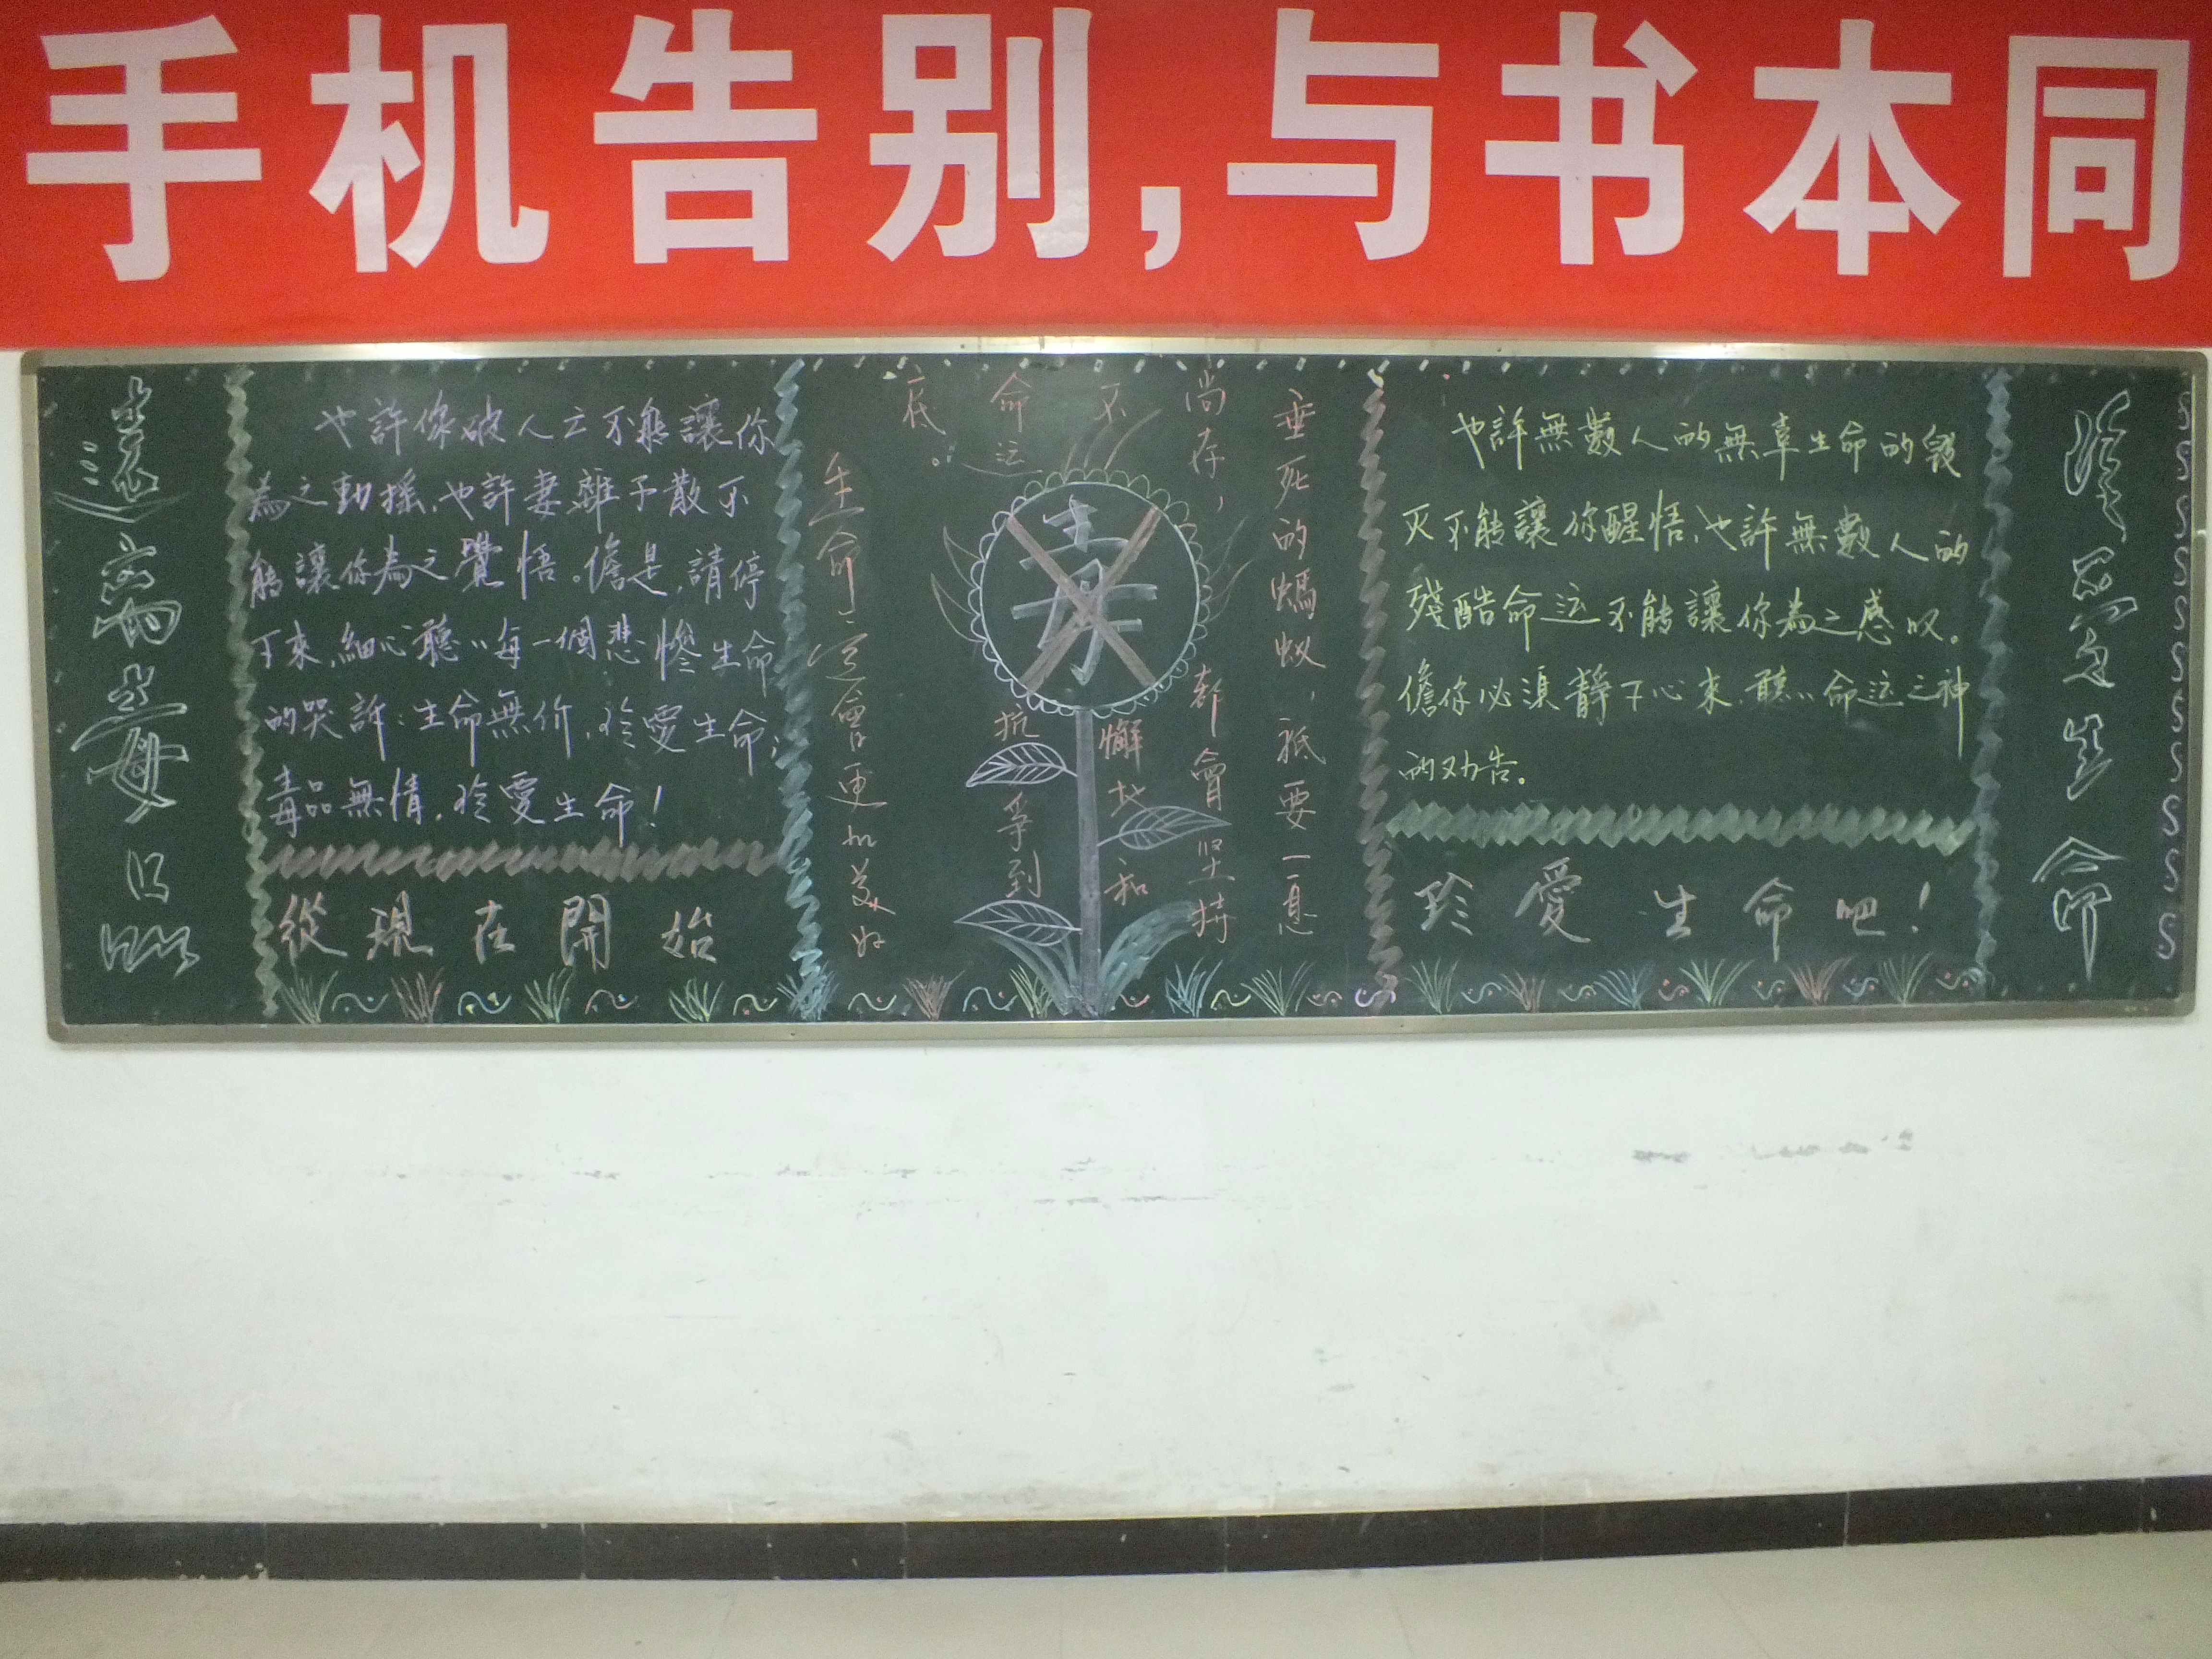 手机告别,与书本同
遠离毒品
也許你破人亡不能讓你
為之動搖,也許妻離子散不
能讓你為之覺悟。儋是,請停
下來,細心聽〃每一個悲慘生命
的哭訴:生命無价,珍愛生命;
毒品無情,珍愛生命!
從現在開始
垂死的螞蚁,祗要一息
尚存,都會坚持
不懈地和
命运抗争到
底。
生命
會更加美好
毒
也許無數人的無辜生命的毀
灭不能讓你醒悟,也許無數人的
殘酷命运不能讓你為之感叹。
儋你必須靜下心來,聽〃命运之神
的劝告。
珍愛生命吧!
生命